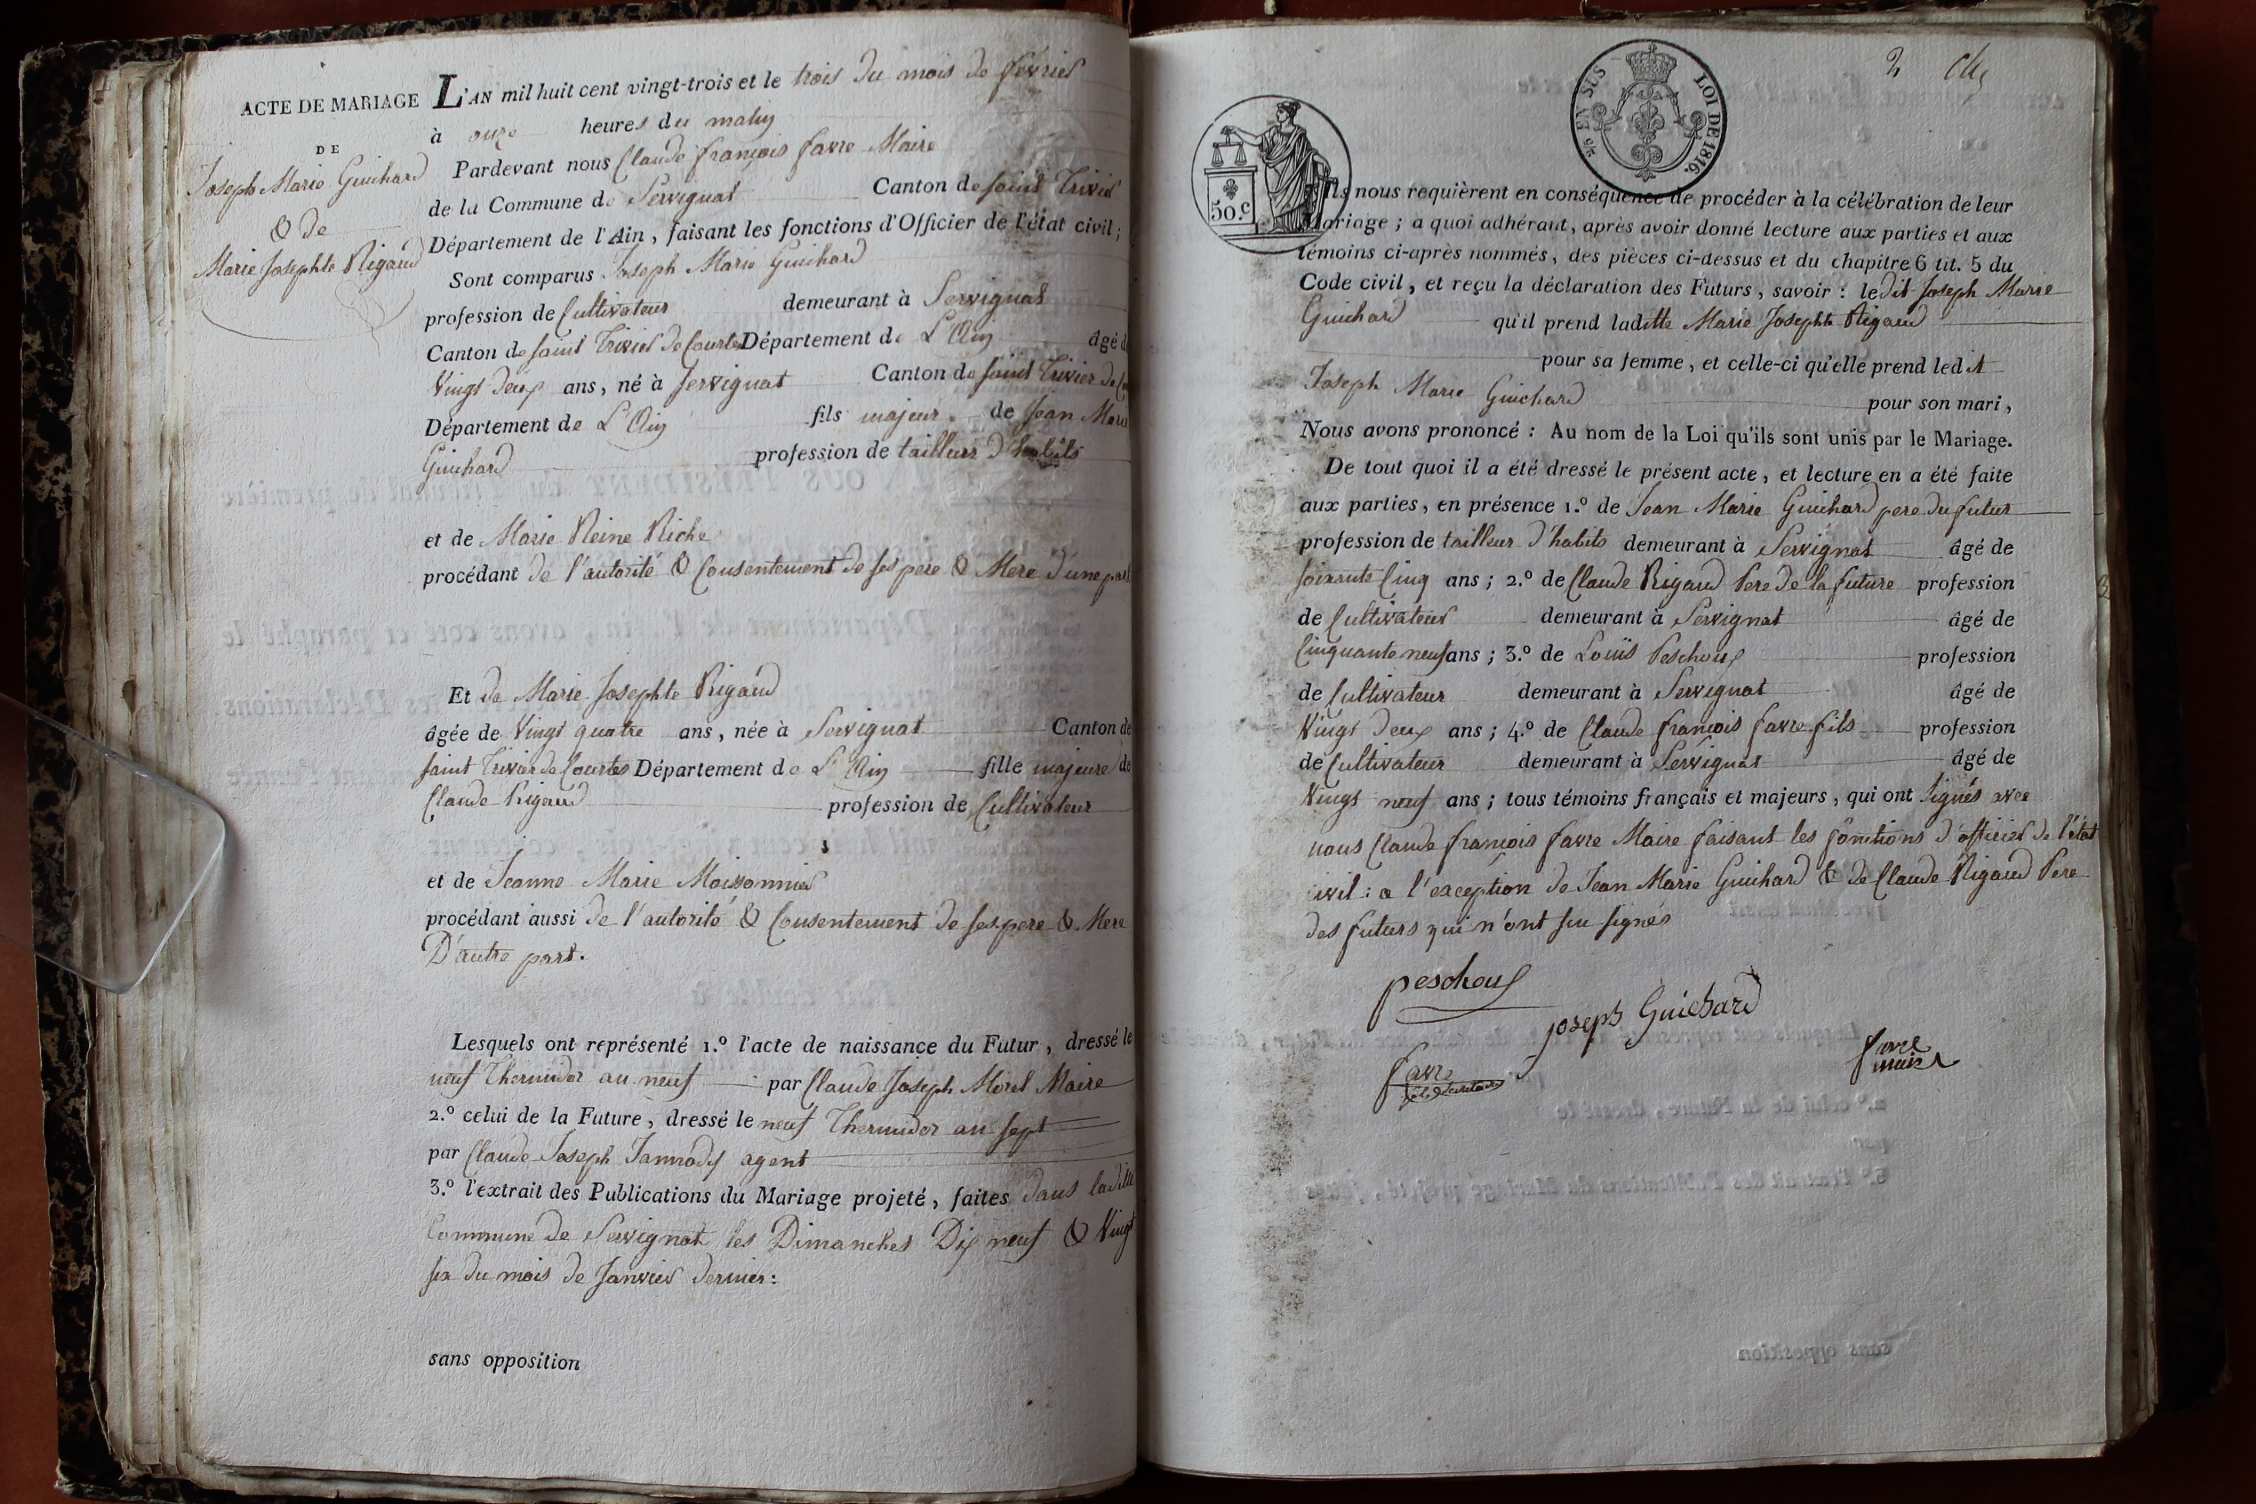 ACTE DE MARIAGE
DE
Joseph Marie Guichard
& de
Marie Josephte Rigaud
L'AN mil huit cent vingt-trois et le trois du mois de fevrier
à onze heures du matin
Pardevant nous Claude françois favre Maire
de la Commune de Servignat Canton de saint Trivier
Département de l'Ain, faisant les fonctions d'Officier de l'état civil;
Sont comparus Joseph Marie Guichard
profession de Cultivateur demeurant à Servignat
Canton de saint Trivier de Courtes Département de L'Ain âgé d
Vingt deux ans, né à Servignat Canton de saint Trivier de Co
Département de L'Ain fils majeur de Jean Marie
Guichard profession de tailleur d'habits
et de Marie Reine Riche
procédant de l'autorité & Consentement de ses pere & Mere d'une part
Et de Marie Josephte Rigaud
âgée de Vingt quatre ans, née à Servignat Canton de
saint Trivier de Courtes Département de L'Ain fille majeure de
Claude Rigaud profession de Cultivateur
et de Jeanne Marie Moissonnier
procédant aussi de l'autorité & Consentement de ses pere & Mere
D'autre part.
Lesquels ont représenté 1.º l'acte de naissance du Futur, dressé le
neuf Thermidor an neuf par Claude Joseph Morel Maire
2.º celui de la Future, dressé le neuf Thermidor an sept
par Claude Joseph agent
3.º l'extrait des Publications du Mariage projeté, faites dans laditte
Commune de Servignat les Dimanches Dix neuf & Vingt
six du mois de Janvier dernier:
sans opposition
2
EN SUS LOI DE 1816.
50.c
Ils nous requièrent en conséquence de procéder à la célébration de leur
Mariage; a quoi adhérant, après avoir donné lecture aux parties et aux
témoins ci-après nommés, des pièces ci-dessus et du chapitre 6 tit. 5 du
Code civil, et reçu la déclaration des Futurs, savoir: ledit Joseph Marie
Guichard qu'il prend laditte Marie Josephte Rigaud
pour sa femme, et celle-ci qu'elle prend ledit
Joseph Marie Guichard pour son mari,
Nous avons prononcé: Au nom de la Loi qu'ils sont unis par le Mariage.
De tout quoi il a été dressé le présent acte, et lecture en a été faite
aux parties, en présence 1.º de Jean Marie Guichard pere du futur
profession de tailleur d'habits demeurant à Servignat âgé de
soixante Cinq ans; 2.º de Claude Rigaud Pere de la future profession
de Cultivateur demeurant à Servignat âgé de
Cinquante neuf ans; 3.º de Louis Peschoux profession
de Cultivateur demeurant à Servignat âgé de
Vingt deux ans; 4.º de Claude françois favre fils profession
de Cultivateur demeurant à Servignat âgé de
Vingt neuf ans; tous témoins français et majeurs, qui ont signés avec
nous Claude françois favre Maire faisant les fonctions d'officier de l'état
civil: a l'exception de Jean Marie Guichard & de Claude Rigaud Pere
des futurs qui n'ont su signés
peschoux
joseph Guichard
favre
favre
maire